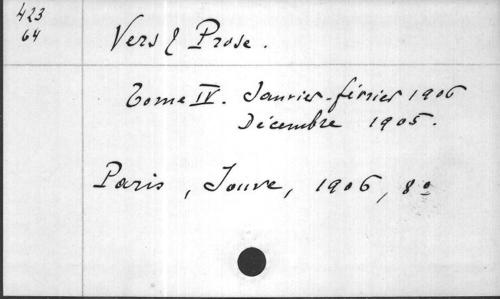 423
64
Vers & Prose.
Tome IV. Janvier-février 1906
Décembre 1905.
Paris, Jouve, 1906, 8º